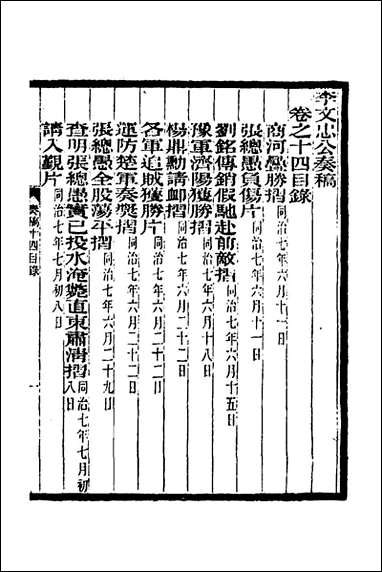 李文忠公奏稿
卷之十四目錄
商河屢勝摺同治七年六月十一日
張總愚負傷片同治七年六月十一日
劉銘傳銷假馳赴前敵摺同治七年六月十五日
豫軍濟陽獲勝摺同治七年六月十八日
楊鼎勳請卹摺同治七年六月二十二日
各軍追賊獲勝片同治七年六月二十二日
運防楚軍奏獎摺同治七年六月二十二日
張總愚全股蕩平摺同治七年六月二十九日
查明張總愚實已投水淹斃直東肅清摺同治七年七月初八日
請入覲片同治七年七月初八日
奏稿十四目錄
一